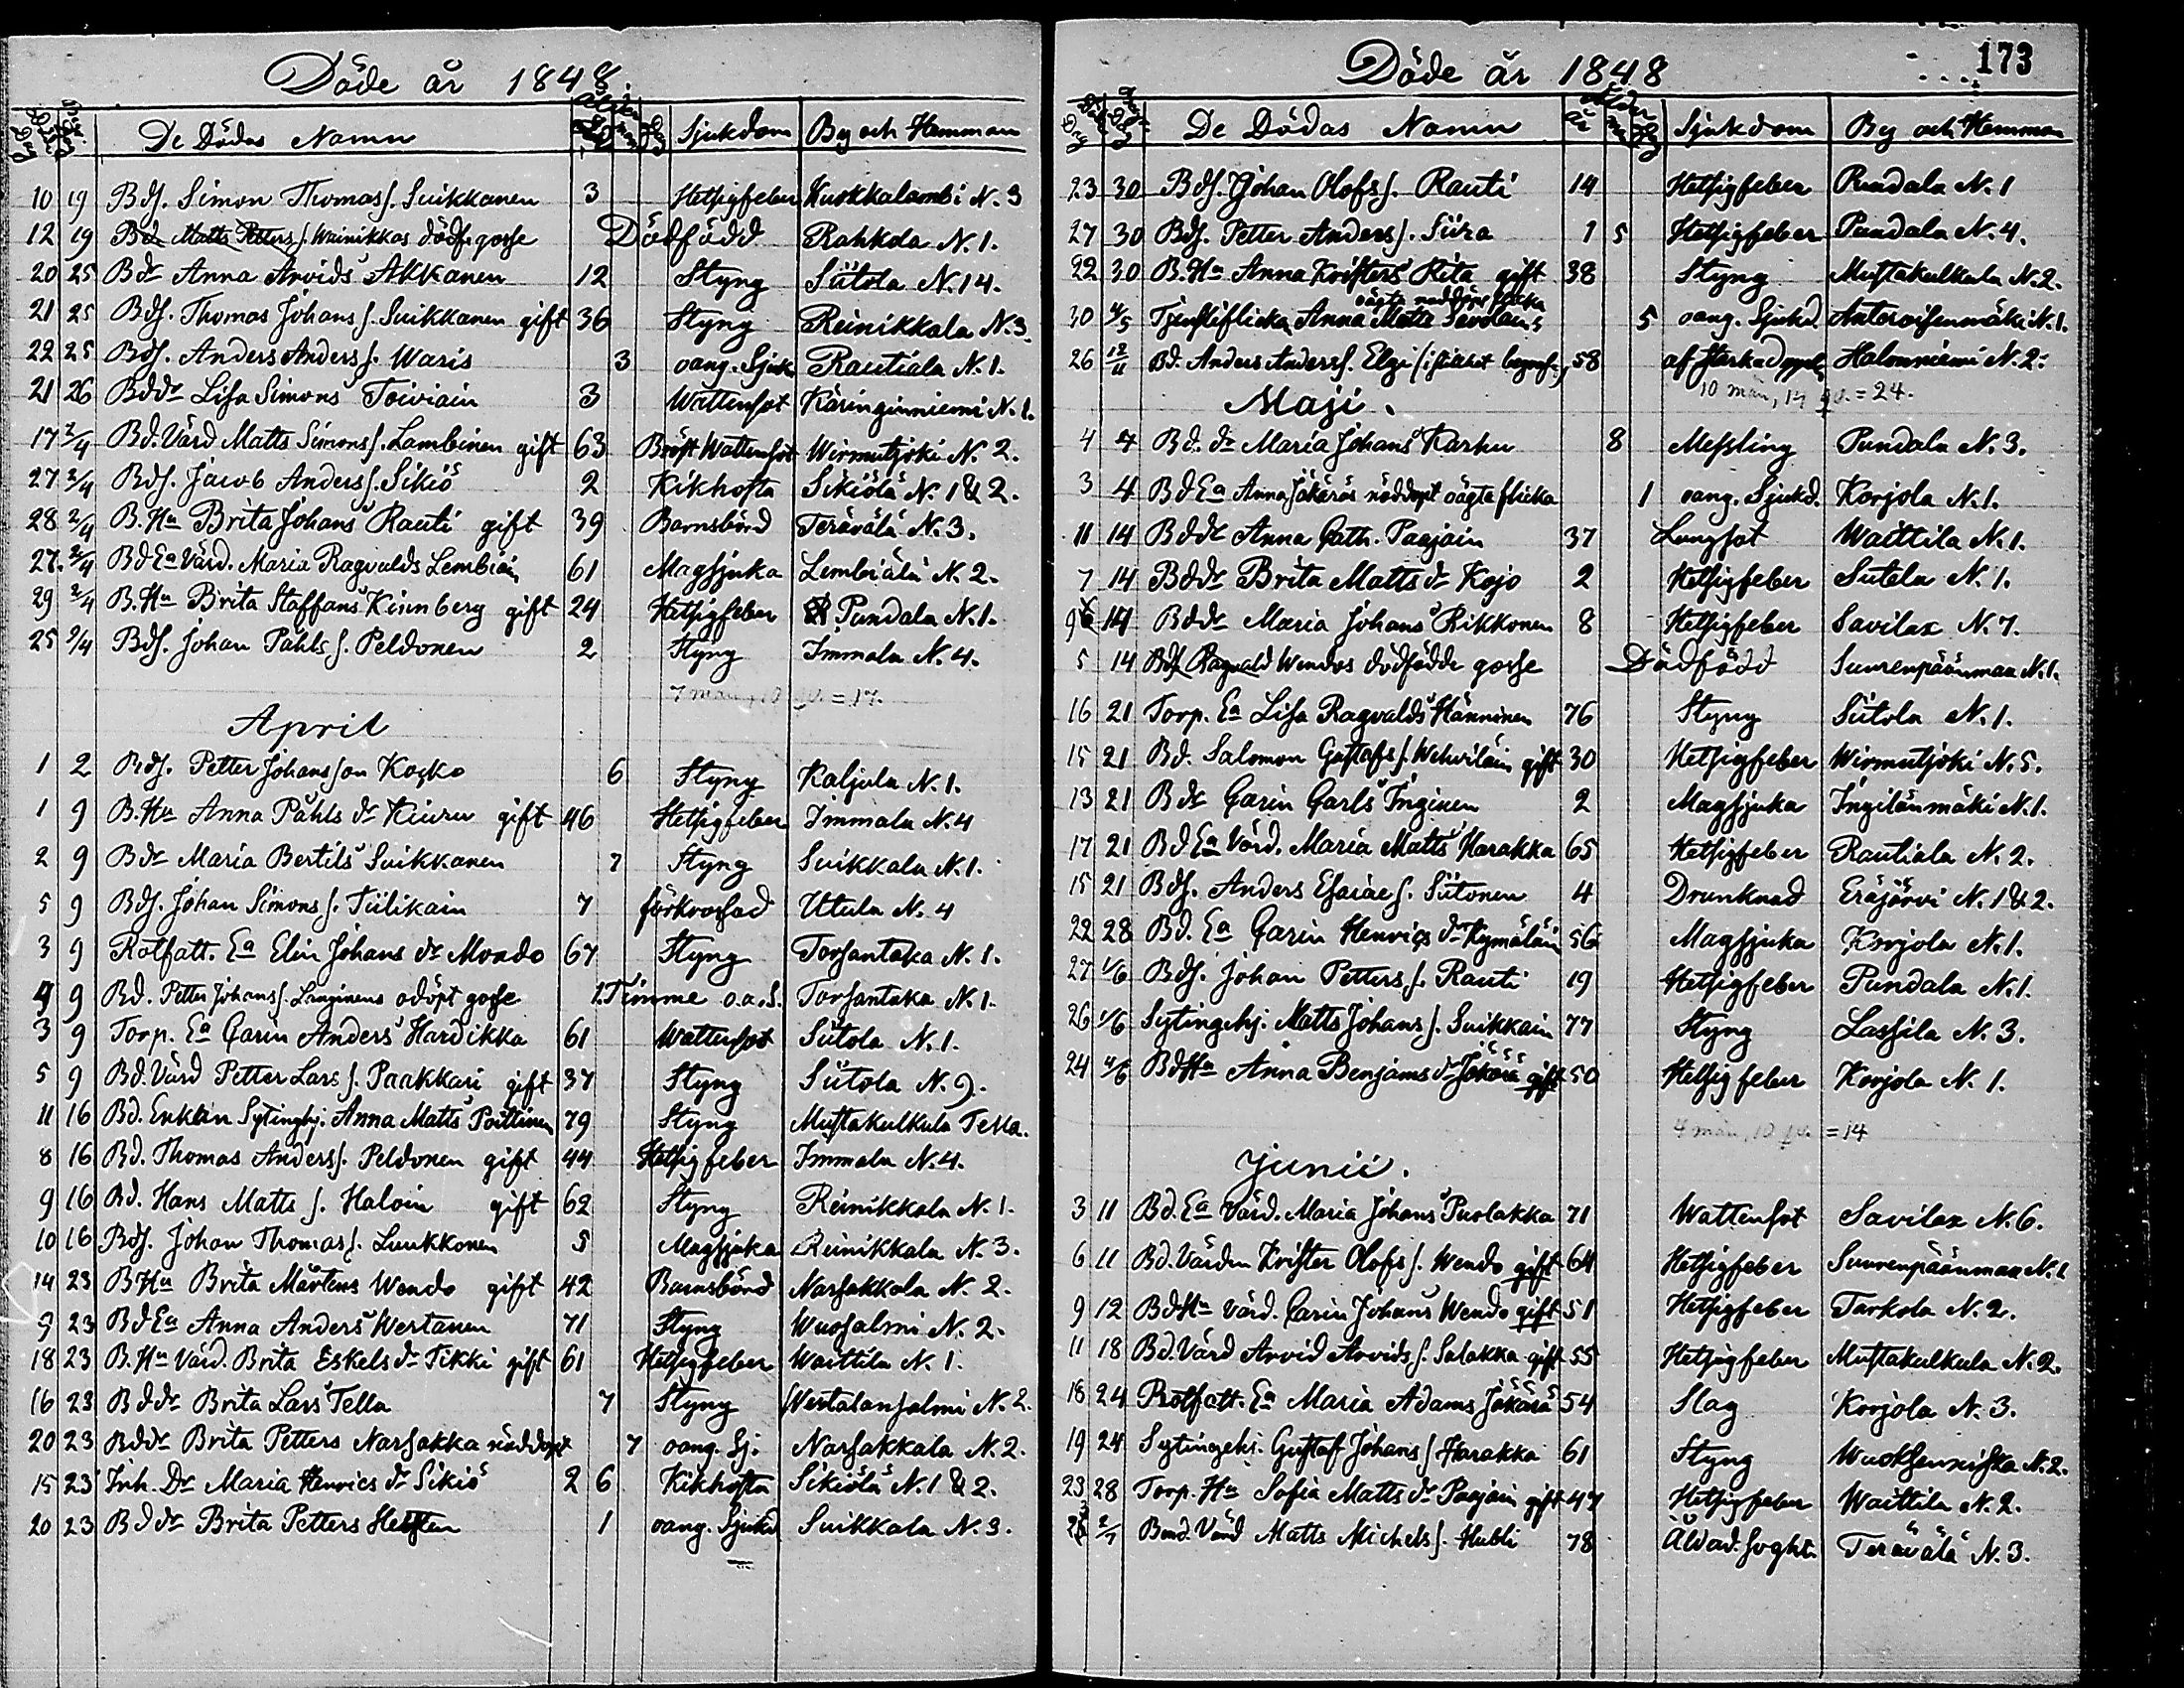 Döde år 1848.
De Dödas Namn Sjukdom By och Hemman
10 19 Bdſ. Simon Thomasſ. Suikkanen 3 Hetſigfeber Kuokkalambi N. 3
12 19 Bd. Matts Petters ſ. Wainikkas dödf. goſſe Dödfödd Rahkola N. 1.
20 25 Bdr Anna Arvids Akkanen 12 Styng Siitola N. 14.
21 25 Bdſ. Thomas Johans ſ. Suikkanen gift 36 Styng Reinikkala N. 3.
22 25 Bdſ. Anders Anders ſ. Waris 3 oang. Sjukd. Rautiala N. 1.
21 26 Bddr Liſa Simons Toiviain 3 Wattenſot Käringinniemi N. 1.
17 2/4 Bd. Värd Matts Simons ſ. Lambinen gift 63 Bröſt Wattenſot Wirmutjoki N. 2.
27 2/4 Bdſ. Jacob Anders ſ. Sikiö 2 Kikhoſta Sikiölä N. 1 & 2.
28 2/4 B. Hu Brita Johans Rauti gift 39 Barnsbörd Terävälä N. 3.
27. 2/4 Bd Ea Värd. Maria Ragvalds Lembiäin 61 Magſjuka Lembiälä N. 2.
29 2/4 B. Hu Brita Staffans Kinnberg gift 24 Hetſigfeber Pundala N. 1.
25 9/4 Bdſ. Johan Påhls ſ. Peldonen 2 Styng Immala N. 4.
7 man, 10 qv. = 17.
April
1 2 Bdſ. Petter Johansſon Koſko 6 Styng Kaljula N. 1.
1 9 B. Hu Anna Påhls dr Kiuru gift 46 Hetſigfeber Immala N. 4
2 9 Bdr Maria Bertils Suikkanen 7 Styng Suikkala N. 1.
5 9 Bdſ. Johan Simons ſ. Tiilikain 7 förkroſſad Utula N. 4
3 9 Rotfatt. Ea Elin Johans dr Mondo 67 Styng Torſantaka N. 1.
4 9 Bd. Petter Johansſ. Langinens odöpt goſſe 1 Timme o.a.S. Torſantaka N. 1.
3 9 Torp. Ea Carin Anders Hardikka 61 Wattenſot Siitola N. 1.
5 9 Bd. Värd Petter Lars ſ. Paakkari gift 37 Styng Siitola N. 9.
11 16 Bd. Enkan Sytinghj. Anna Matts Pöittinen 79 Styng Muſtakulkula Tella.
8 16 Bd. Thomas Andersſ. Peldonen gift 44 Hetſigfeber Immala N. 4.
9 16 Bd. Hans Matts ſ. Haloin gift 62 Styng Reinikkala N. 1.
10 16 Bdſ. Johan Thomasſ. Luukkonen 5 Magſjuka Reinikkala N. 3.
14 23 B Hu Brita Mårtens Wendo gift 42 Barnsbörd Narſakkala N. 2.
9 23 Bd Ea Anna Anders Wertanen 71 Styng Wuoſalmi N. 2.
18 23 B. Hu Värd. Brita Eskels dr Tikki gift 61 Hetſigfeber Waittila N. 1.
16 23 Bddr Brita Lars Tella 7 Styng Wertalanſalmi N. 2.
20 23 Bddr Brita Petters Narſakka nöddopt 7 oang. Sj. Narſakkala N. 2.
15 23 Inh. Dr Maria Henrics dr Sikiö 2 6 Kikhoſta Sikiölä N. 1 & 2.
20 23 Bddr Brita Petters 1 oang. Sjukd Suikkala N. 3.
173
Döde år 1848
De Dödas Namn Ålder år Sjukdom By och Hemman
23 30 Bdſ. Johan Olofsſ. Rauti 14 Hetſigfeber Pundala N. 1
27 30 Bdſ. Petter Andersſ. Siira 1 5 Hetſigfeber Pundala N. 4.
22 30 B. Hu Anna Kriſters Rita gift 38 Styng Muſtakulkula N. 2.
oägta nöddöpt flicka
30 4/5 Tjenſteflickan Anna Matts Savolains 5 oang. Sjukd. Anteroiſenmäki N. 1.
26 12/11 Bd. Anders Andersſ. Elgi 58 af ſtarka Halonniemi N. 2.
10 män, 14 qv. = 24.
Maji.
4 7 Bd. dr Maria Johans Karhu 8 Meſsling Pundala N. 3.
3 4 Bd Ea Anna Jäkäräs nöddopt oägta flicka 1 oang. Sjukd. Korjola N. 1.
11 14 Bddr Anna Cath. Paajain 37 Lungſot Waittila N. 1.
7 14 Bddr Brita Matts dr Kojo 2 Hetſigfeber Sutela N. 1.
9 14 Bddr Maria Johans Rikkonen 8 Hetſigfeber Savilax N. 7.
5 14 Bdſ Ragvald Wendos dödfödde goſſe Dödfödd Suurenpäänmaa N. 1.
16 21 Torp. Ea Liſa Ragvalds Hänninen 76 Styng Siitola N. 1.
15 21 Bd. Salomon Guſtafsſ. Wehviläin gift 30 Hetſigfeber Wirmutjoki N. 5.
13 21 Bdr Carin Carls Inginen 2 Magſjuka Ingilänmäki N. 1.
17 21 Bd Ea Värd. Maria Matts Harakka 65 Hetſigfeber Rautiala N. 2.
15 21 Bdſ. Anders Eſaiae ſ. Siitonen 4 Drunknad Eräjärvi N. 1 & 2.
22 28 Bd. Ea Carin Henrics dr Kymäläin 56 Magſjuka Korjola N. 1.
27 1/6 Bdſ. Johan Pettersſ. Rauti 19 Hetſigfeber Pundala N. 1.
26 1/6 Sytingshj. Matts Johans ſ. Suikkain 77 Styng Laſſila N. 3.
24 4/6 BdHu Anna Benjams dr Jäkärä gift 50 Hetſigfeber Korjola N. 1.
4 män, 10 qv. = 14
Junii.
3 11 Bd. Ea Värd. Maria Johans Puolakka 71 Wattenſot Savilax N. 6.
6 11 Bd. Värden Kriſter Olofsſ. Wendo gift 64 Hetſigfeber Suurenpäänmaa N. 1
9 12 BdHu Värd. Carin Johans Wendo gift 51 Hetſigfeber Tarkola N. 2.
11 18 Bd. Värd Arvid Arvidsſ. Salakka gift 55 Hetſigfeber Muſtakulkula N. 2.
18 24 Rotfatt. Ea Maria Adams Jäkärä 54 Slag Korjola N. 3.
19 24 Sytingehj. Guſtaf Johansſ Harakka 61 Styng Wuokſenniſka N. 2.
23 28 Torp. Hu Sofia Matts dr Paajain gift 47 Hetſigfeber Waittila N. 2.
2/7 Bond. Värd Matts Michelsſ. Hubli 78 Terävälä N. 3.